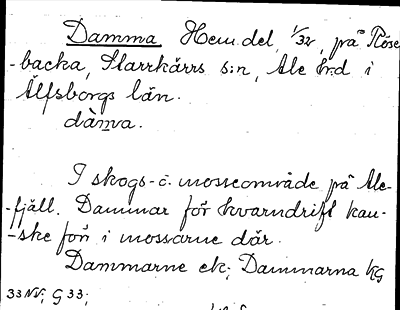 Damma Hem.del, 1/32, på Röse
-backa, Starrkärrs s:n, Ale h:d i
Älfsborgs län.
dàmva.
I skogs- o. mosseområde på Ale-
-fjäll. Dammar för kvarndrift kan-
-ske förr i mossarne där.
Dammarne ek; Dammarna kg
33 NV; G 33;